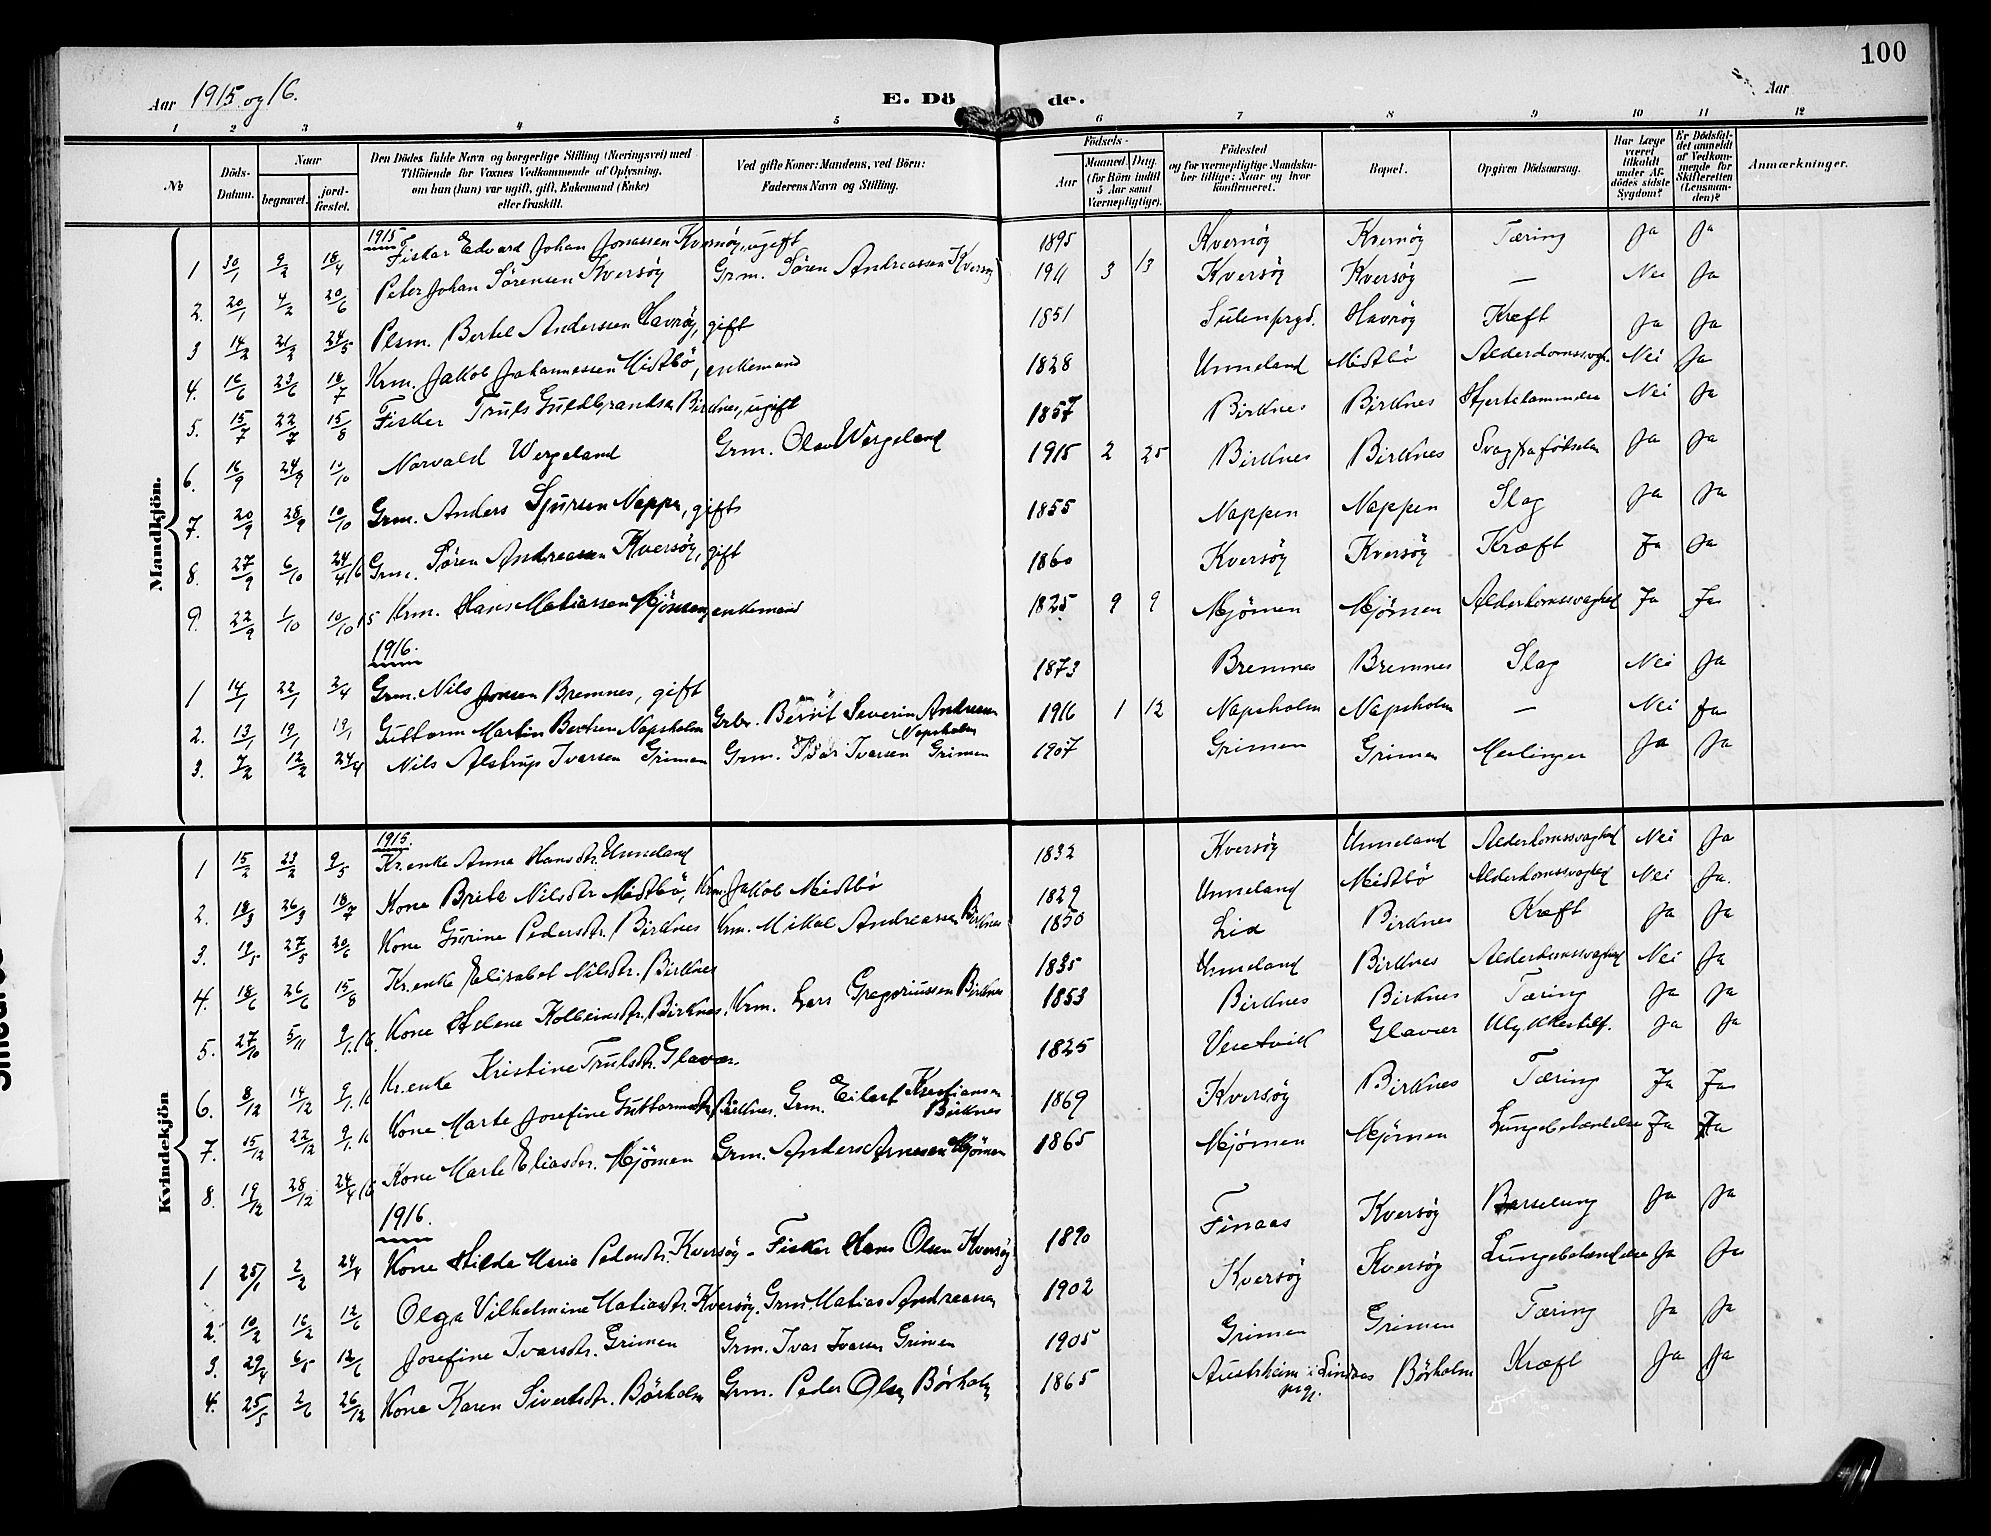 100
Aar 1915 og 16. E. Dö de. Aar
1 2 3 4 5 6 7 8 9 10 11 12
No Döds-Datum. Naar begravet. jord-fæstet. Den Dödes fulde Navn og borgerlige Stilling (Næringsvei) med Tilföiende for Voxnes Vedkommende af Oplysning, om han (hun) var ugift, gift, Enkemand (Enke) eller fraskilt. Ved gifte Koner: Mandens, ved Börn: Faderens Navn og Stilling. Födsels- Aar Maaned. Dag. (for Börn indtil 5 Aar samt Værnepligtige). Födested og for værnepligtige Mandskaber tillige: Naar og hvor konfirmeret. Bopæl. Opgiven Dödsaarsag. Har Læge været tilkaldt under Afdödes sidste Sygdom? Er Dödsfaldet anmeldt af Vedkommende for Skifteretten (Lensmanden)? Anmærkninger.
Mandkjön.
1915
1 30/1 9/2 18/4 Fisker Edvard Johan Jonassen Kvernöy, ugift 1895 Kvernöy Kvernöy Tæring Ja Ja
2. 20/1 4/2 20/6 Peter Johan Sörensen Kversöy Grm. Sören Andreassen Kversöy 1911 3 13 Kversöy Kversöy — Nei Ja
3 14/2 21/2 24/5 Plsm. Bertel Anderssen Havröy, gift 1851 Sulen prgd. Havröy Kræft Ja Ja
4. 16/6 23/6 18/7 Krm. Jakob Johannessen Midtbö, enkemand 1828 Unneland Midtbö Alderdomssvagh. Nei Ja
5. 15/7 22/7 15/8 Fisker Truls Guldbrandsen Birknes, ugift 1857 Birknes Birknes Hjertelammelse Nei Ja
6. 16/9 24/9 10/10 Norvald Wergeland Grm. Olav Wergeland 1915 2 25 Birknes Birknes Svag fra fødselen Ja Ja
7. 20/9 28/9 10/10 Grm. Anders Sjursen Nappen, gift 1855 Nappen Nappen Slag Ja Ja
8. 27/9 6/10 24/4 16 Grm. Sören Andreassen Kversöy, gift 1860 Kversöy Kversöy Kræft Ja Ja
9. 22/9 1/10 10/10 15 Krm. Hans Matiassen Mjömen, enkemand 1825 9 9 Mjömen Mjömen Alderdomssvaghed Ja Ja
1916.
1 14/1 22/1 2/4 Grm. Nils Jonsen Bremnes, gift 1873 Bremnes Bremnes Slag Nei Ja
2. 13/1 19/1 19/1 Guttorm Martin Berntsen Napsholm Grbr. Bernt Severin Andersen Napsholm 1916 1 12 Napsholm Napsholm — Nei Ja
3. 7/2 12/2 24/4 Nils Alstrup Ivarsen Grimen Grm. Ivar Ivarsen Grimen 1907 Grimen Grimen Meslinger Ja Ja
Kvindekjön
1915.
1 15/2 23/2 9/5 Kr.enke Anna Hansdtr. Unneland 1832 Kversöy Unneland Alderdomssvaghed Nei Ja
2. 18/3 26/3 18/7 Kone Brite Nilsdtr Midtbö, Krm. Jakob Midtbö 1829 Unneland Midtbö Alderdomssvaghed Nei Ja.
3. 19/5 27/5 20/6 Kone Gurine Pedersdtr. Birknes Krm. Mikal Andreassen Birknes 1850 Lid Birknes Kræft Ja Ja
4. 18/6 26/6 15/8 Kr.enke Elisabet Nilsdtr. Birknes 1835 Unneland Birknes Alderdomssvaghed Nei Ja
5. 27/10 5/11 9/1 16. Kone Helene Kolbeinsdtr. Birknes, Krm. Lars Gregoriussen Birknes 1853 Birknes Birknes Tæring Ja Ja
6. 8/12 14/12 9/1 16 Kr.enke Kristine Trulsdtr. Glavær. 1825 Glavær Ulykkestilf. Ja Ja
7. 15/12 22/12 9/1 16 Kone Marte Josefine Guttormsdtr. Birknes. Grm. Eilert Kristiansen Birknes 1869 Kversöy Birknes Tæring Ja Ja
8. 19/12 28/12 24/4 16 Kone Marte Eliasdtr. Mjömen Grm. Anders Arnesen Mjömen 1865 Mjömen Mjömen Lungebetændelse Ja Ja
1916.
1 25/1 2/2 24/4 Kone Hilda Marie Pedersdtr. Kversöy - Fisker Hans Olsen Kversöy 1890 Finaas Kversöy Barselseng Ja Ja
2. 10/2 16/2 12/6 Olga Vilhelmine Matiasdtr. Kversöy. Grm. Matias Andreassen 1902 Kversöy Kversöy Lungebetændelse Ja Ja
3. 29/4 6/5 12/6 Josefine Ivarsdtr. Grimen Grm. Ivar Ivarsen Grimen 1905 Grimen Grimen Tæring Ja Ja
4. 25/5 2/6 26/12 Kone Karen Sivertsdtr. Börholm Grm. Peder Olsen Börholm 1865 Austrheim i Lindaas prgj. Börholm Kræft Ja Ja